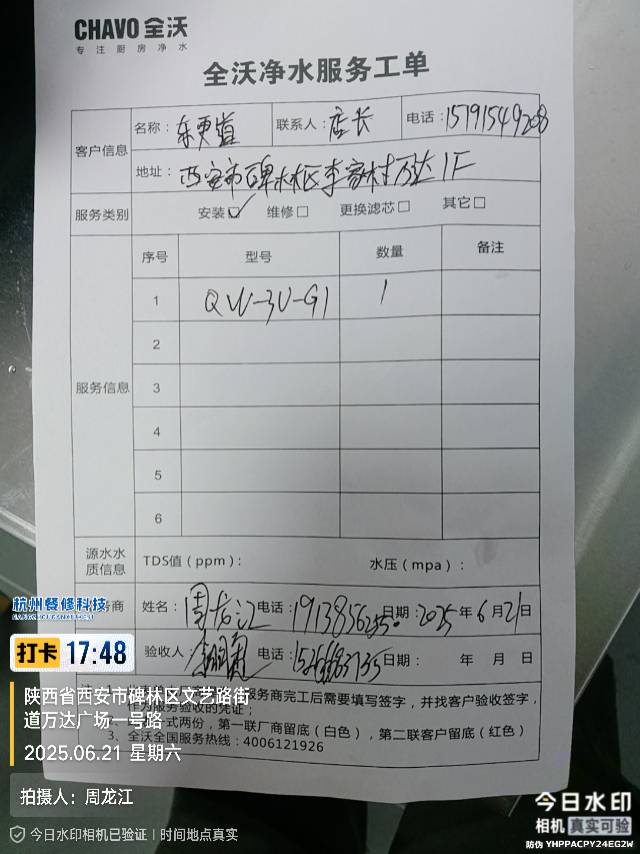 CHAVO 全沃
专注厨房净水
全沃净水服务工单
客户信息
名称：东更道 联系人：店长 电话：15191549208
地址：西安市碑林区李家村万达1F
服务类别 安装☑ 维修□ 更换滤芯□ 其它□
服务信息
序号 型号 数量 备注
1 QW-3U-G1 1
2
3
4
5
6
源水水质信息 TDS值（ppm）： 水压（mpa）：
务商 姓名：周龙江 电话： 日期：2025年6月21日
验收人： 电话： 日期： 年 月 日
服务商完工后需要填写签字，并找客户验收签字，
作为服务验收的凭证；
式两份，第一联厂商留底（白色），第二联客户留底（红色）
3、全沃全国服务热线：4006121926
杭州餐修科技
打卡 17:48
陕西省西安市碑林区文艺路街
道万达广场一号路
2025.06.21 星期六
拍摄人：周龙江
今日水印相机已验证 | 时间地点真实
今日水印
相机 真实可验
防伪 YHPPACPY24EG2W